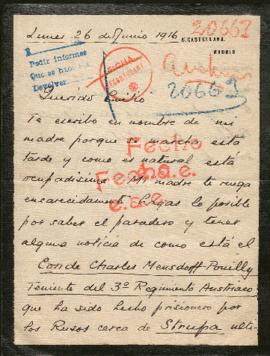 Lunes 26 de Junio 1916
20663
E. CASTELLANA,
MADRID
Pedir informes
Devolver
20663
Querido Emilio
Te escribo en nombre de mi
madre porque se marcha esta
tarde y como es natural está
ocupadisima. Mi madre te ruega
encarecidamente hagas lo posible
por saber el paradero y tener
alguna noticia de como está el
Conde Charles Mensdorff-Pouilly
Teniente del 3º Regimiento Austriaco
que ha sido hecho prisionero por
los Rusos cerca de Strupa ulti-
Fecho
Fecha.e.
e.a.